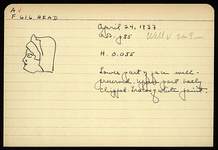 A
F 616 HEAD
April 24, 1937
H. 0.055
Lower part of face well-
preserved, upper part badly
chipped. Traces of white paint.